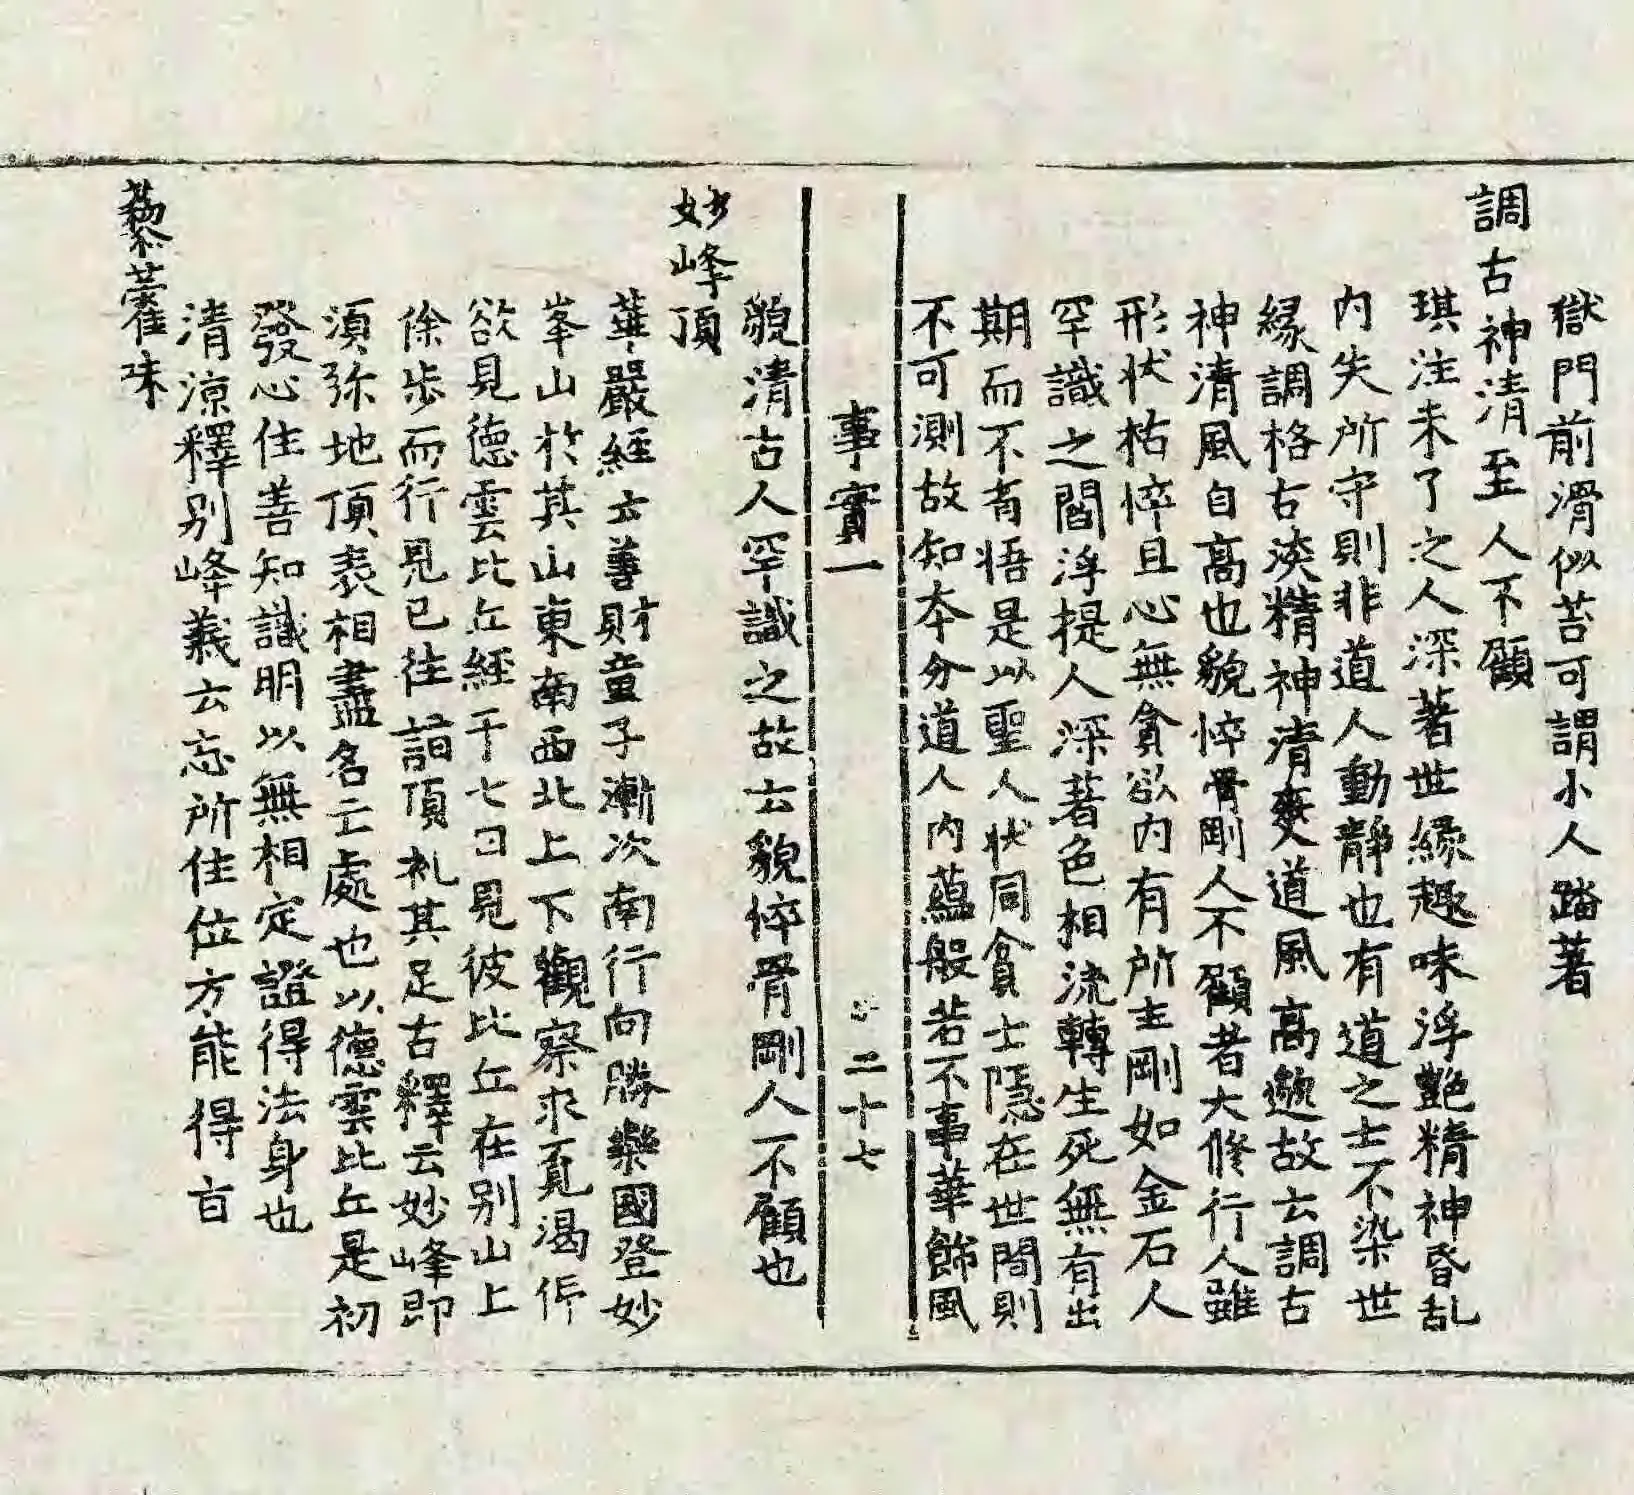 獄門前滑似苔可謂小人踏著
調古神清至人不顧
琪注未了之人深著世緣趣味浮艶精神昏乱
内失所守則非道人動靜也有道之士不染世
緣調格古淡精神清爽道風高邈故云調古
神清風自高也貌悴骨剛人不顧者大修行人雖
形状枯悴且心無貪欲内有所主剛如金石人
罕識之閻浮提人深著色相流轉生死無有出
期而不有悟是以聖人状同貪士隱在世間則
不可測故知本分道人内蘊般若不事華飾風
事實一 二十七
貌清古人罕識之故云貌悴骨剛人不顧也
妙峰頂
華嚴經云善財童子漸次南行向勝樂國登妙
峯山於其山東南西北上下觀察求覓渴仰
欲見德雲比丘經于七日見彼比丘在别山上
徐步而行見已往詣頂礼其足古釋云妙峰即
湏弥地頂表相盡名亡處也以德雲比丘是初
發心住善知識明以無相定證得法身也
清涼釋别峰義云忘所住位方能得旨
藜藿味